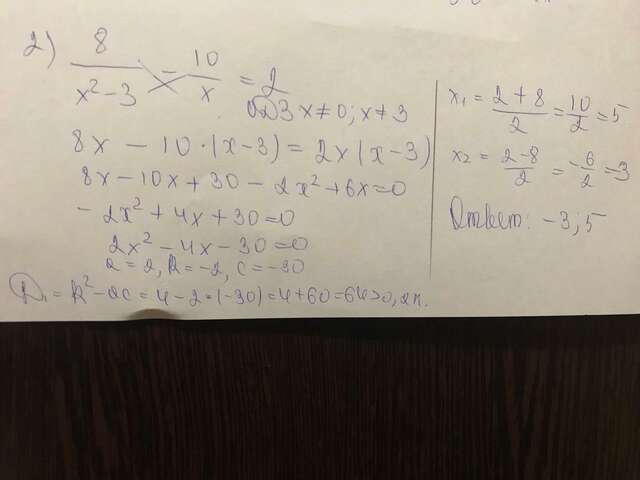 2) 8/(x²-3) - 10/x = 2
ОДЗ x≠0; x≠3
8x - 10·(x-3) = 2x(x-3)
8x - 10x + 30 - 2x² + 6x = 0
- 2x² + 4x + 30 = 0
2x² - 4x - 30 = 0
a = 2, k = -2, c = -30
D₁ = k² - ac = 4 - 2·(-30) = 4 + 60 = 64 > 0, 2к.
x₁ = (2+8)/2 = 10/2 = 5
x₂ = (2-8)/2 = -6/2 = -3
Ответ: -3; 5